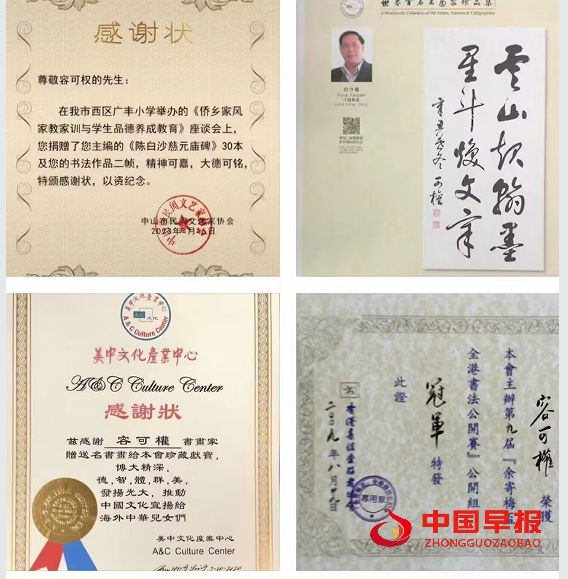 感谢状
尊敬容可权的先生：
在我市西区广丰小学举办的《侨乡家风
家教家训与学生品德养成教育》座谈会上，
您捐赠了您主编的《陈白沙慈元庙碑》30本
及您的书法作品二帧，精神可嘉，大德可铭，
特颁感谢状，以资纪念。
中山市民间文艺家协会
云山起翰墨
星斗焕文章
可權
美中文化產業中心
A&C Culture Center
A&C Culture Center
感謝狀
茲感謝 容可權 書畫家
贈送名書畫給本會珍藏獻寶，
博大精深，
德，智，體，群，美，
發揚光大，推動
中國文化宣揚給
海外中華兒女們
美中文化產業中心
A&C Culture Center
容可權 榮獲
本會主辦第九屆『余寄梅盃
全港書法公開賽』公開組
冠軍 特發
此證
二〇〇九年八月
中国早报
ZHONGGUOZAOBAO